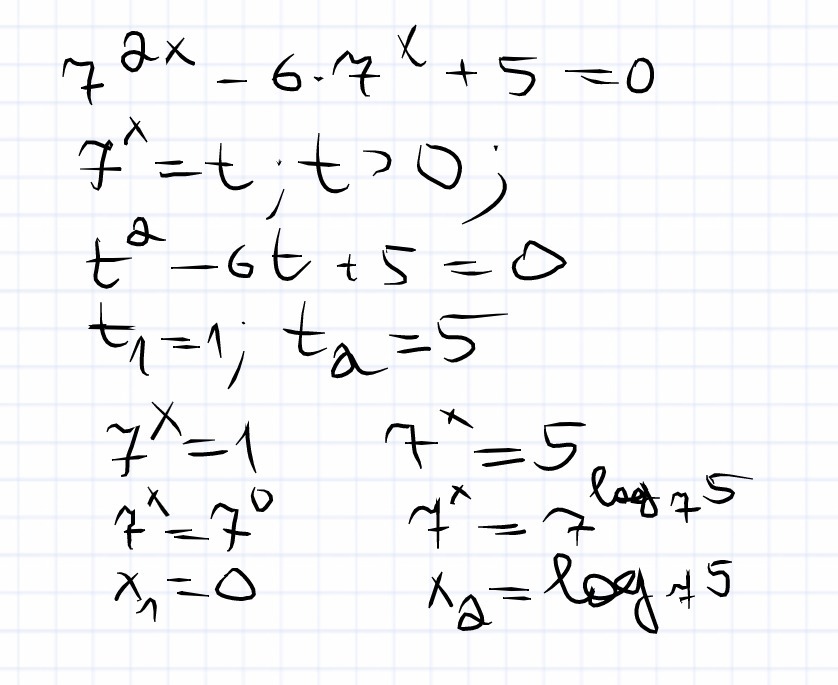 7^{2x} - 6·7^x + 5 = 0
7^x = t; t > 0;
t^2 - 6t + 5 = 0
t_1 = 1; t_2 = 5
7^x = 1 7^x = 5
7^x = 7^0 7^x = 7^{log_7 5}
x_1 = 0 x_2 = log_7 5